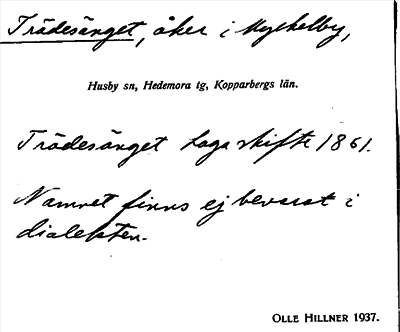 Trädesänget, åker i Myckelby,
Husby sn, Hedemora tg, Kopparbergs län.
Trädesänget Laga skifte 1861.
Namnet finns ej bevarat i
dialekten.
OLLE HILLNER 1937.